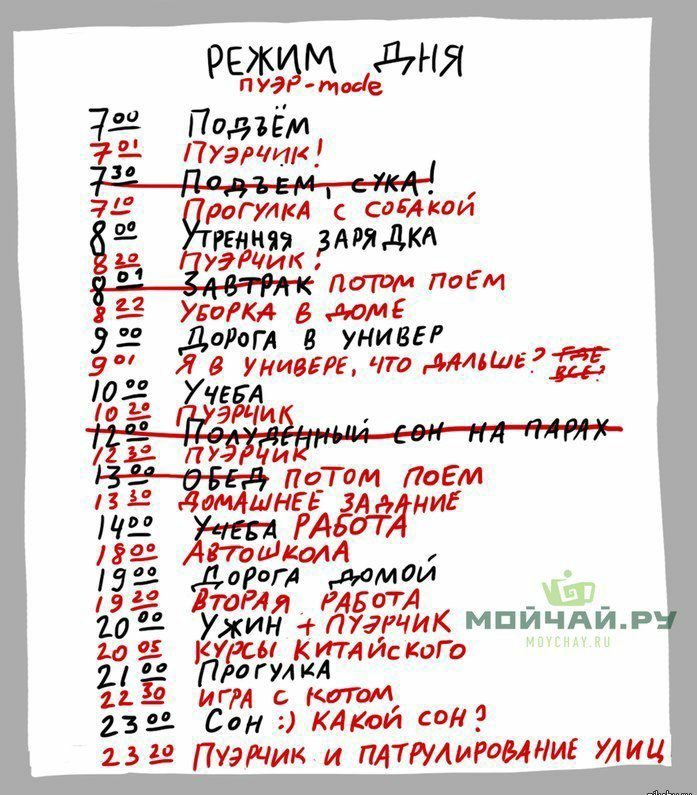 РЕЖИМ ДНЯ
ПУЭР-mode
7 00 ПОДЪЁМ
7 01 ПУЭРЧИК!
7 30 ПОДЪЕМ, СУКА!
7 10 ПРОГУЛКА С СОБАКОЙ
8 00 УТРЕННЯЯ ЗАРЯДКА
8 20 ПУЭРЧИК!
8 01 ЗАВТРАК ПОТОМ ПОЁМ
8 22 УБОРКА В ДОМЕ
9 00 ДОРОГА В УНИВЕР
9 01 Я В УНИВЕРЕ, ЧТО ДАЛЬШЕ? ГДЕ ВСЕ?
10 00 УЧЕБА
10 20 ПУЭРЧИК
12 00 ПОЛУДЕННЫЙ СОН НА ПАРАХ
12 30 ПУЭРЧИК
13 00 ОБЕД ПОТОМ ПОЕМ
13 30 ДОМАШНЕЕ ЗАДАНИЕ
14 00 УЧЕБА РАБОТА
18 00 АВТОШКОЛА
19 00 ДОРОГА ДОМОЙ
19 20 ВТОРАЯ РАБОТА
20 00 УЖИН + ПУЭРЧИК
20 05 КУРСЫ КИТАЙСКОГО
21 00 ПРОГУЛКА
22 30 ИГРА С КОТОМ
23 00 СОН :) КАКОЙ СОН?
23 20 ПУЭРЧИК И ПАТРУЛИРОВАНИЕ УЛИЦ
МОЙЧАЙ.РУ
MOYCHAY.RU